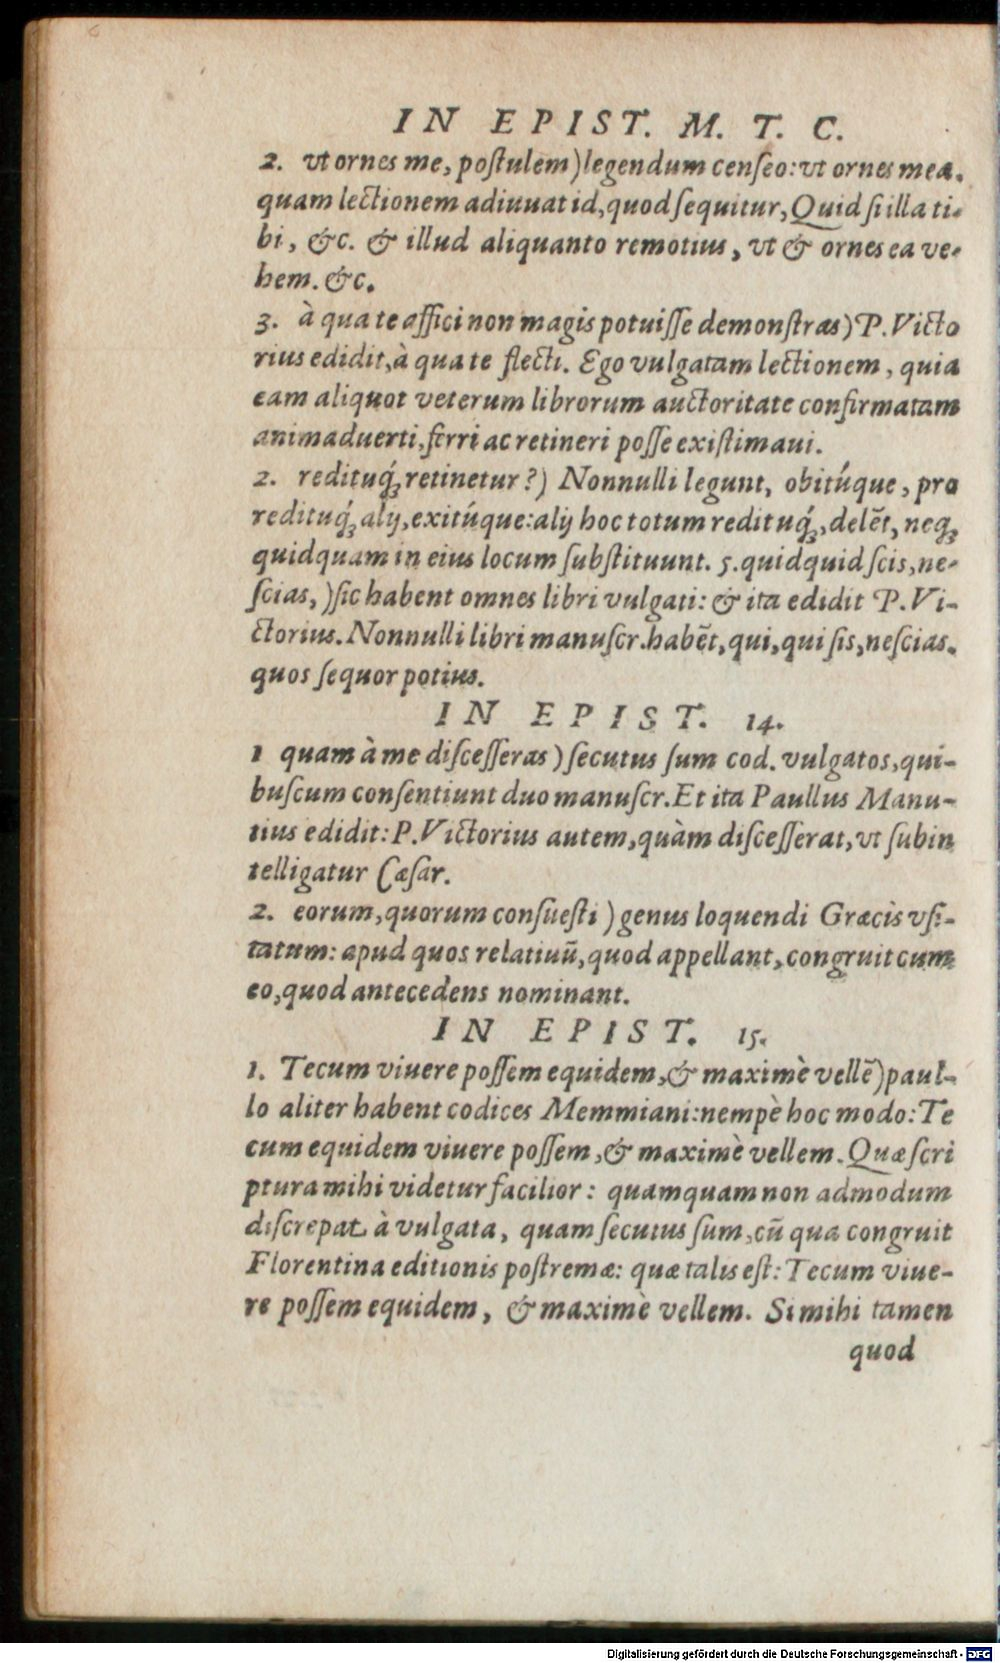 IN EPIST. M. T. C.
2. vt ornes me, poſtulem) legendum cenſeo: vt ornes mea.
quam lectionem adiuuat id, quod ſequitur, Quid ſi illa ti-
bi, &c. & illud aliquanto remotius, vt & ornes ea ve-
hem. &c.
3. à qua te affici non magis potuiſſe demonſtras) P. Victo
rius edidit, à qua te flecti. Ego vulgatam lectionem, quia
eam aliquot veterum librorum auctoritate confirmatam
animaduerti, ferri ac retineri poſſe exiſtimaui.
2. redituq́ꝫ retinetur?) Nonnulli legunt, obitúque, pro
redituq́ꝫ alij, exitúque: alij hoc totum redituq́ꝫ, delẽt, neqꝫ
quidquam in eius locum ſubſtituunt. 5. quidquid ſcis, ne-
ſcias,) ſic habent omnes libri vulgati: & ita edidit P. Vi-
ctorius. Nonnulli libri manuſcr. habẽt, qui, qui ſis, neſcias.
quos ſequor potius.
IN EPIST. 14.
1 quam à me diſceſſeras) ſecutus ſum cod. vulgatos, qui-
buſcum conſentiunt duo manuſcr. Et ita Paullus Manu-
tius edidit: P. Victorius autem, quàm diſceſſerat, vt ſubin
telligatur Cæſar.
2. eorum, quorum conſueſti) genus loquendi Græcis vſi-
tatum: apud quos relatiuũ, quod appellant, congruit cum
eo, quod antecedens nominant.
IN EPIST. 15.
1. Tecum viuere poſſem equidem, & maximè vellẽ) paul-
lo aliter habent codices Memmiani: nempè hoc modo: Te
cum equidem viuere poſſem, & maximè vellem. Quæ ſcri
ptura mihi videtur facilior: quamquam non admodum
diſcrepat à vulgata, quam ſecutus ſum, cũ qua congruit
Florentina editionis poſtremæ: quæ talis eſt: Tecum viue-
re poſſem equidem, & maximè vellem. Si mihi tamen
quod
Digitalisierung gefördert durch die Deutsche Forschungsgemeinschaft - DFG